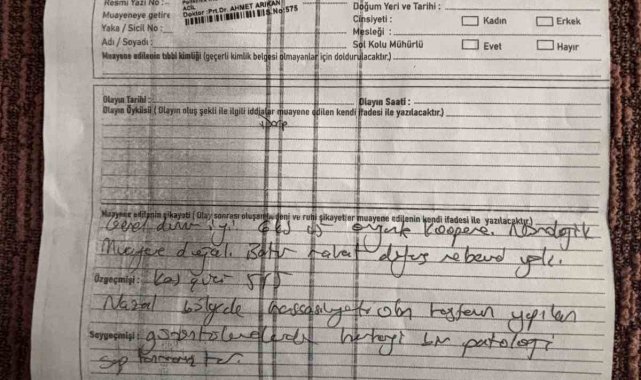 Resmi Yazı No :
ACİL
Doktor :Prt.Dr. AHMET ARIKAN
S.No:575
Doğum Yeri ve Tarihi :
Muayeneye getire
Cinsiyeti :
Kadın
Erkek
Yaka / Sicil No :
Mesleği :
Adı / Soyadı :
Sol Kolu Mühürlü
Evet
Hayır
Muayene edilenin tıbbi kimliği (geçerli kimlik belgesi olmayanlar için doldurulacaktır.)
Olayın Tarihi :
Olayın Saati :
Olayın Öyküsü ( Olayın oluş şekli ile ilgili iddialar muayene edilen kendi ifadesi ile yazılacaktır.)
Darp
Muayene edilenin şikayeti ( Olay sonrası oluşan bedeni ve ruhi şikayetler muayene edilenin kendi ifadesi ile yazılacaktır)
Genel durum iyi GKS 15 oryante koopere. Nörolojik
Muayene doğal. Batın rahat defans rebound yok.
Özgeçmişi : Kas gücü 5/5
Nazal bölgede hassasiyeti olan hastanın yapılan
Soygeçmişi : görüntülemelerde herhangi bir patoloji
saptanmamıştır.